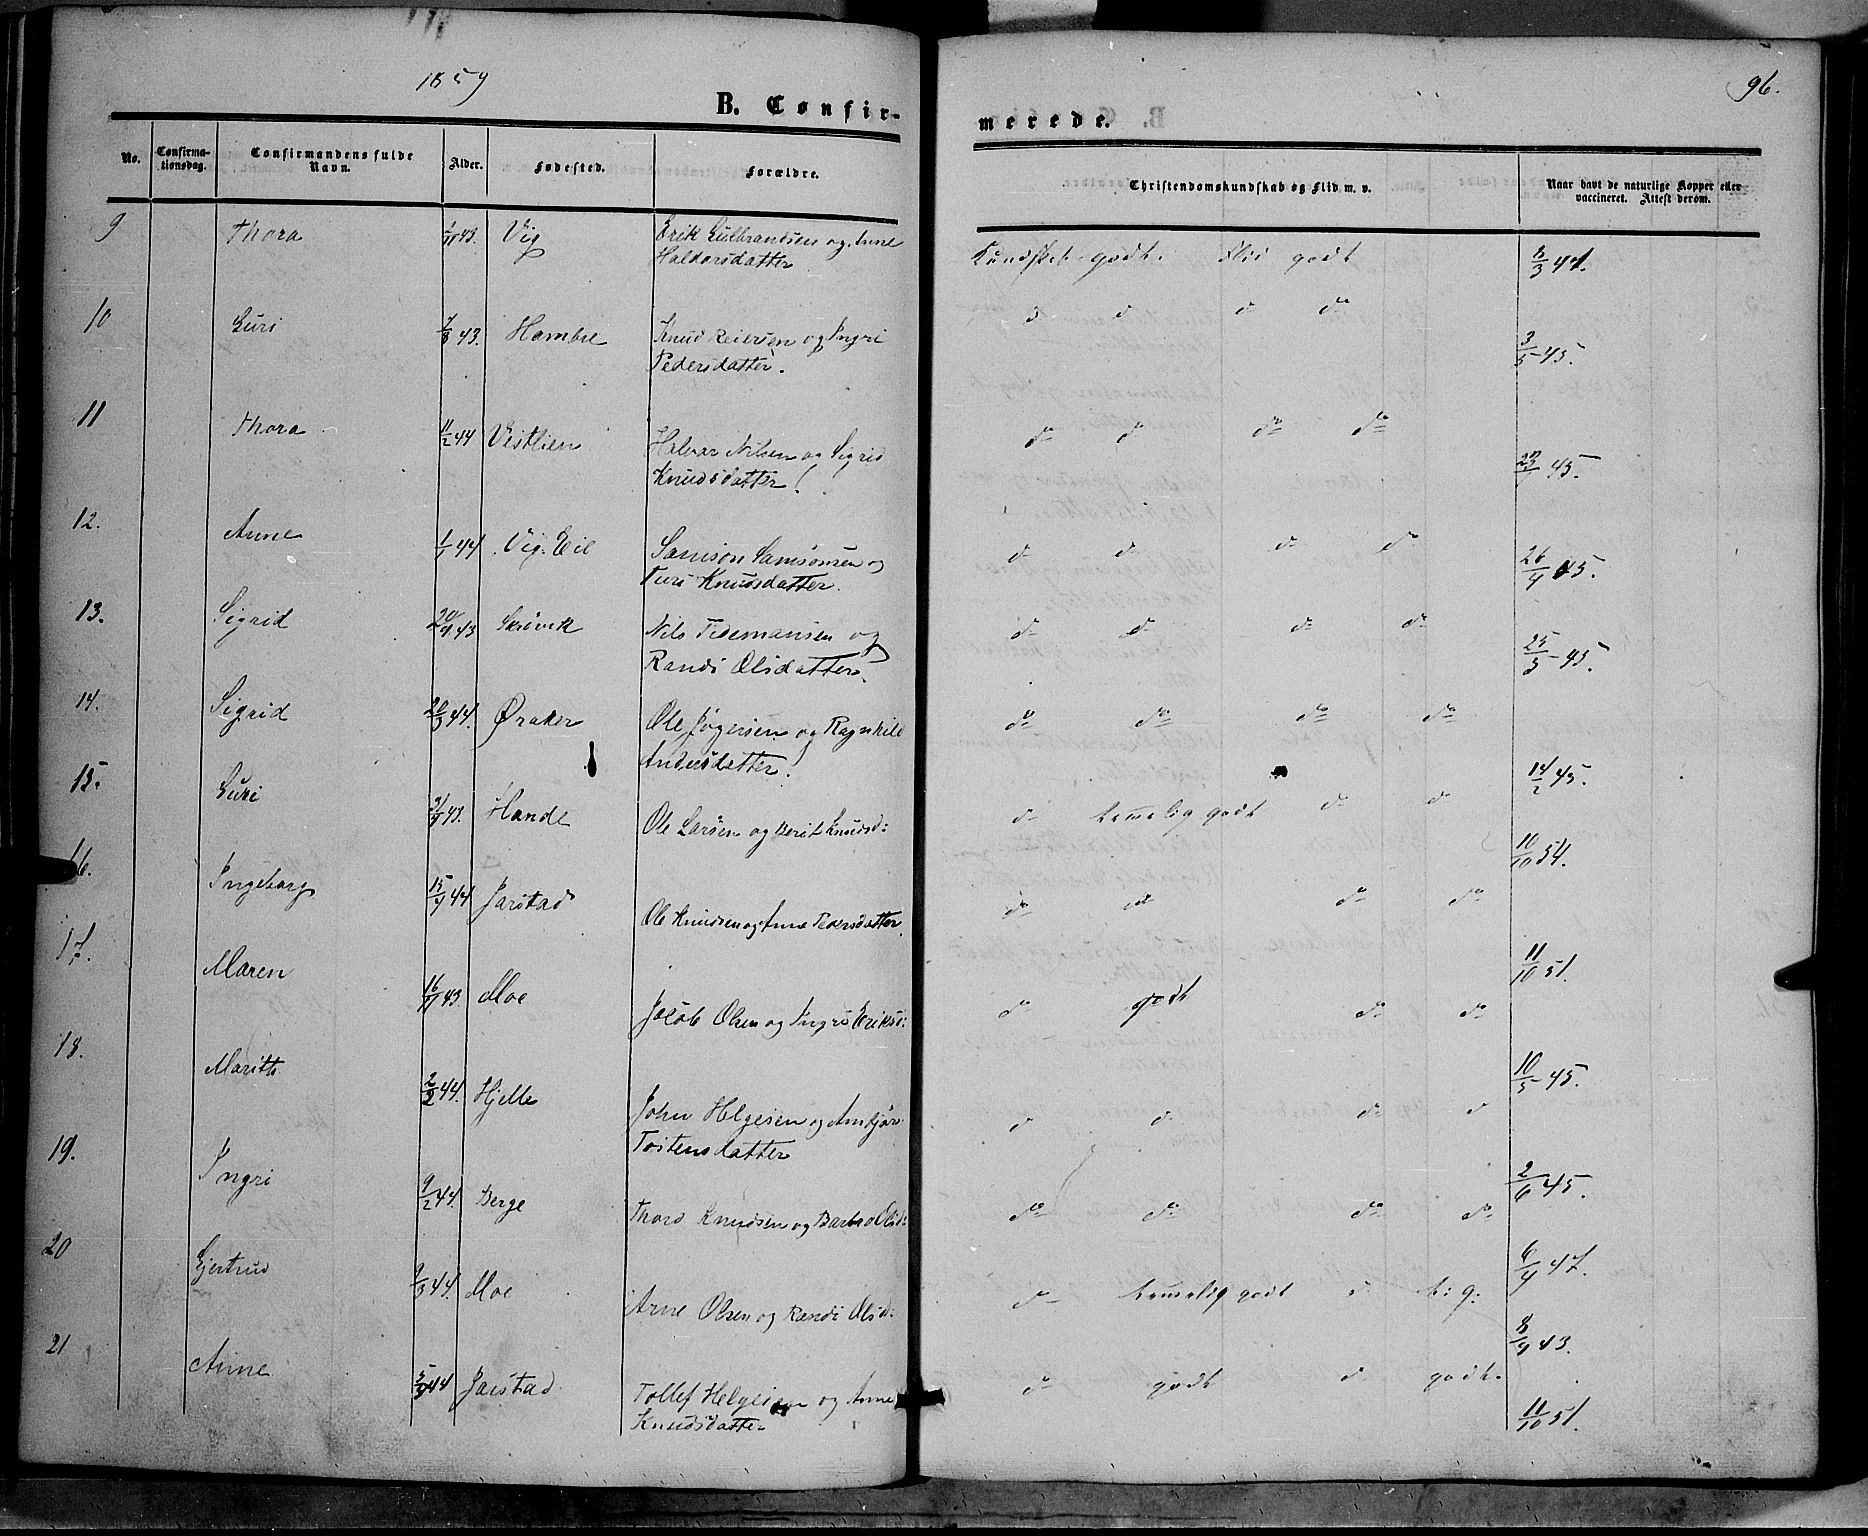 1859
B. Confir-
merede.
96.
No.
Confirma-
tionsdag.
Confirmandens fulde
Navn.
Alder.
Fødested.
Forældre.
Christendomskundskab og Flid m. v.
Naar havt de naturlige Kopper eller
vaccineret. Attest derom.
9 Thora 43. Vig Erik Gulbrandsen og Anne
Haldorsdatter Kundskab godt. Flid godt 6/3 47.
10 Guri 7/8 43. Hambre Knud Reiersen og Ingri
Pedersdatter. d d do 3/5 45.
11 Thora 11/2 44 Vestlien Halvor Nilsen og Sigrid
Knudsdatter! do do do do 45.
12. Anne 1/1 44. Vig. Eie Samson Samsonsen og
Turi Knudsdatter. do do do do 26/4 45.
13. Sigrid 20/9 43 Skrivik Nils Tidemansen og
Randi Olsdatter. do do do do 25/5 45.
14. Sigrid 20/3 44. Øraker Ole Jøgersen og Ragnhild
Andersdatter. do do do do 14/2 45.
15. Guri 31/9 43. Hande Ole Larsen og Berit Knudsd: do temmelig godt do do 10/10 54.
16. Ingeborg 15/4 44 Jarstad Ole Knudsen og Anne Pedersdatter. do do do do 11/10 51.
17. Maren 16/11 43. Moe Jacob Olsen og Ingri Eriksd: do godt do do 10/5 45.
18. Marith 2/2 44. Hjelle John Helgesen og Ambjør
Tostensdatter d d do d 2/6 45.
19. Ingri 9/2 44. Berge Thord Knudsen og Barbro Olsd: do do do do 6/4 47.
20 Gjertrud 9/3 44. Moe Arne Olsen og Randi Olsd: do temmelig godt d t. g. 8/9 43.
21 Anne 5/3 44 Jarstad Tollef Helgesen og Anne
Knudsdatter do godt d godt. 11/10 51.